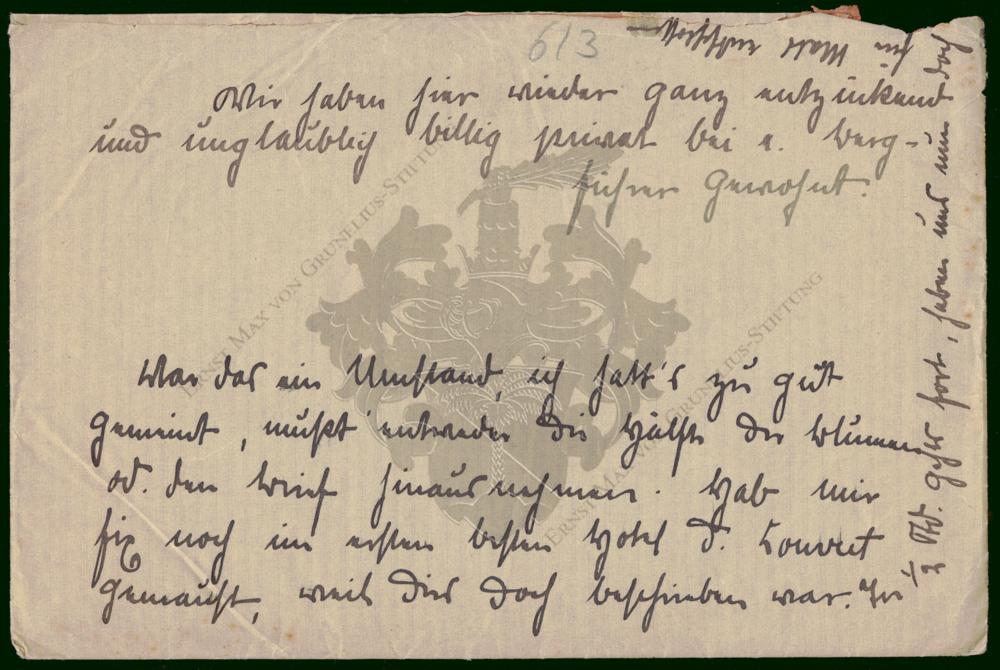 613
Wir haben hier wieder ganz entzückend
und unglaublich billig privat bei e. Berg-
führer gewohnt.
War das ein Umstand, ich hatt's zu gut
gemeint, mußt' entweder die Hälfte der Blumen
od. den Brief hinausnehmen. Hab mir
fix noch im ersten besten Hotel d. Couvert
gemaust, weil dies doch beschrieben war. In
1/2 Std. gehts fort, haben uns nun doch
ERNST MAX VON GRUNELIUS-STIFTUNG
ERNST MAX VON GRUNELIUS-STIFTUNG